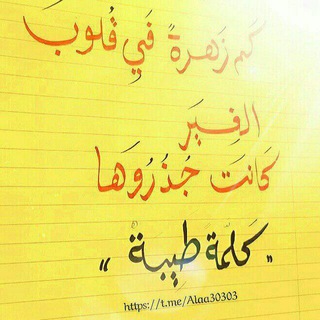 كم زهرةً في قُلوبَ
الغيَر
كَانَت جُذُروُهَا
" كَلمة طيبةْ "
https://t.me/Alaa30303